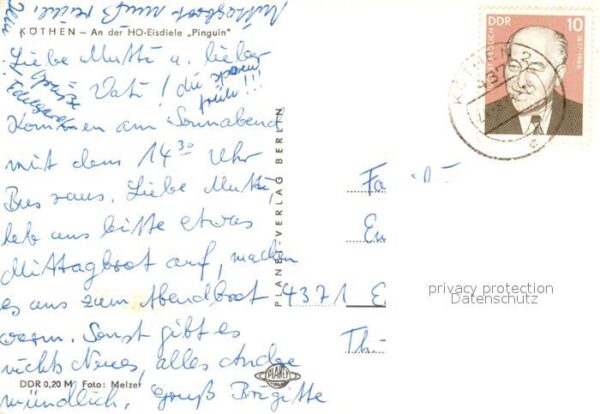 Mittagbrot muß keine
sein
KÖTHEN – An der HO-Eisdiele „Pinguin"
Liebe Mutti u. lieber
Vati!
Grüße
Kommen am Sonnabend
mit dem 14³⁰ Uhr
Bus raus. Liebe Mutti,
heb uns bitte etwas
Mittagbrot auf, machen
es uns zum Abendbrot
warm. Sonst gibt es
nichts Neues, alles Andre
mündlich. Gruß Brigitte
DDR 0,20 M Foto: Melzer
PLANET-VERLAG BERLIN
PLANET
DDR 10
1877-1966
KÖTHEN 2
437
c
Fa
En
4371 E
Thi
privacy protection
Datenschutz